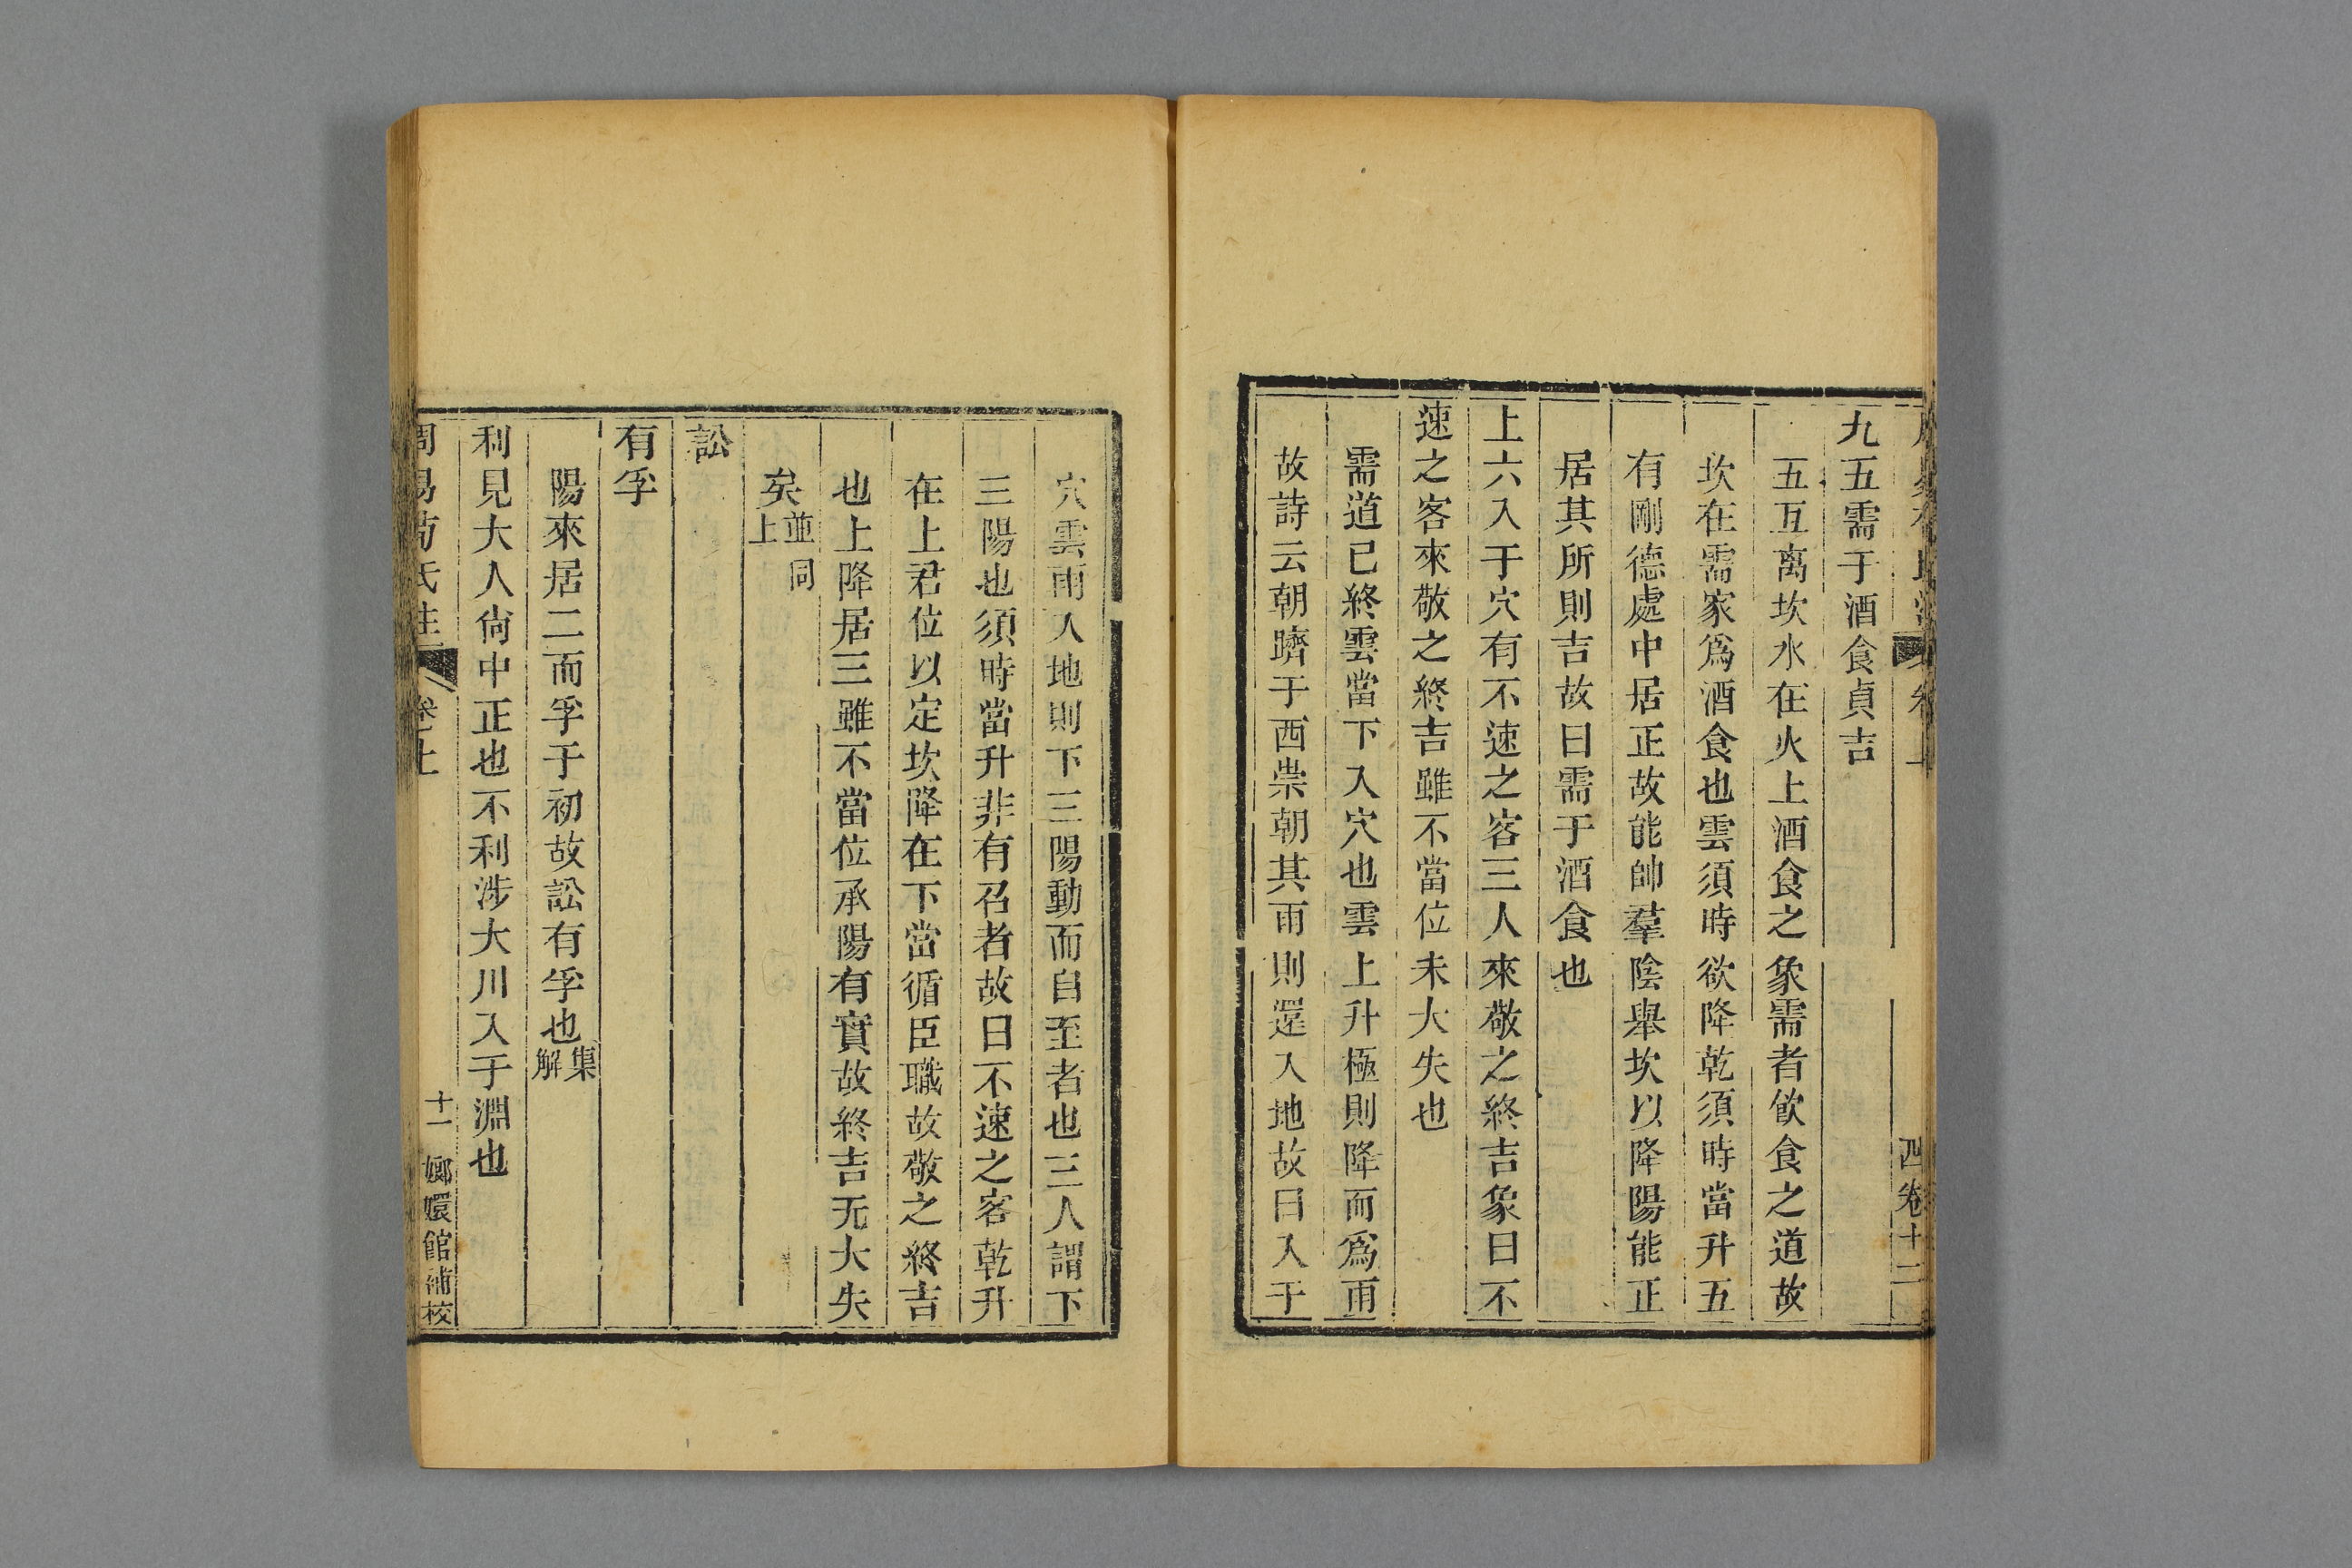 四卷十二
九五需于酒食貞吉
五互离坎水在火上酒食之象需者飮食之道故
坎在需家爲酒食也雲須時欲降乾須時當升五
有剛德處中居正故能帥羣陰舉坎以降陽能正
居其所則吉故曰需于酒食也
上六入于穴有不速之客三人來敬之終吉象曰不
速之客來敬之終吉雖不當位未大失也
需道已終雲當下入穴也雲上升極則降而爲雨
故詩云朝隮于西祟朝其雨則還入地故曰入于
穴雲雨入地則下三陽動而自至者也三人謂下
三陽也須時當升非有召者故曰不速之客乾升
在上君位以定坎降在下當循臣職故敬之終吉
也上降居三雖不當位承陽有實故終吉无大失
矣並同上
訟
有孚
陽來居二而孚于初故訟有孚也集解
利見大人尙中正也不利涉大川入于淵也
周易荀氏注 卷上 十一 嫏嬛館補校